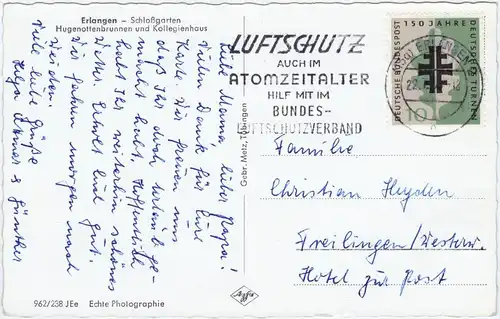 Erlangen – Schloßgarten
Hugenottenbrunnen und Kollegienhaus
Liebe Mama, lieber Papa!
Vielen Dank für Eure
Karte. Wir freuen uns
daß Ihr doch Urlaub ge-
macht habt. Hoffentlich
habt Ihr weiterhin schönes
Wetter. Erholt Euch gut.
Wir fahren morgen nach
Weiden.
Viele liebe Grüße
Günther
962/238 JEe Echte Photographie
Gebr. Metz, Tübingen
Agfa
LUFTSCHUTZ
AUCH IM
ATOMZEITALTER
HILF MIT IM
BUNDES-
LUFTSCHUTZVERBAND
DEUTSCHE BUNDESPOST
150 JAHRE
DEUTSCHES TURNEN
10
Familie
Christian Heyden
Freilingen/Westerw.
Hotel zur Post